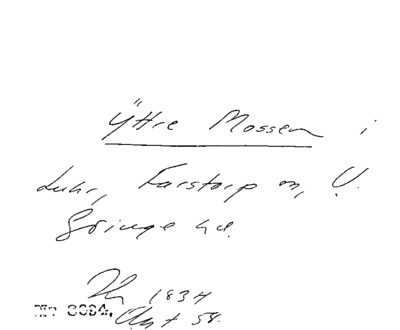 Yttre Mossen i
Luhr, Farstorp sn, V.
Göinge hd.
1834
Akt 58.